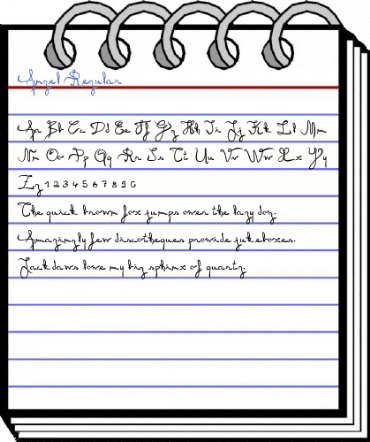 Angel Regular
Aa Bb Cc Dd Ee Ff Gg Hh Ii Jj Kk Ll Mm
Nn Oo Pp Qq Rr Ss Tt Uu Vv Ww Xx Yy
Zz 1 2 3 4 5 6 7 8 9 0
The quick brown fox jumps over the lazy dog.
Amazingly few discotheques provide jukeboxes.
Jackdaws love my big sphinx of quartz.